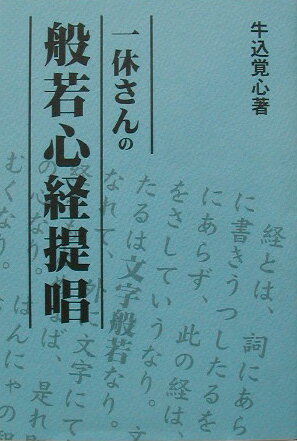 牛込覚心著
一休さんの
般若心経提唱
経とは、詞にあら
に書きうつしたるを
にあらず、此の経は、
をさしていうなり。文
たるは文字般若なり。
なれて、外に文字にて
経
の心なり。
るは、是れ
むくなり。
はんにゃの智